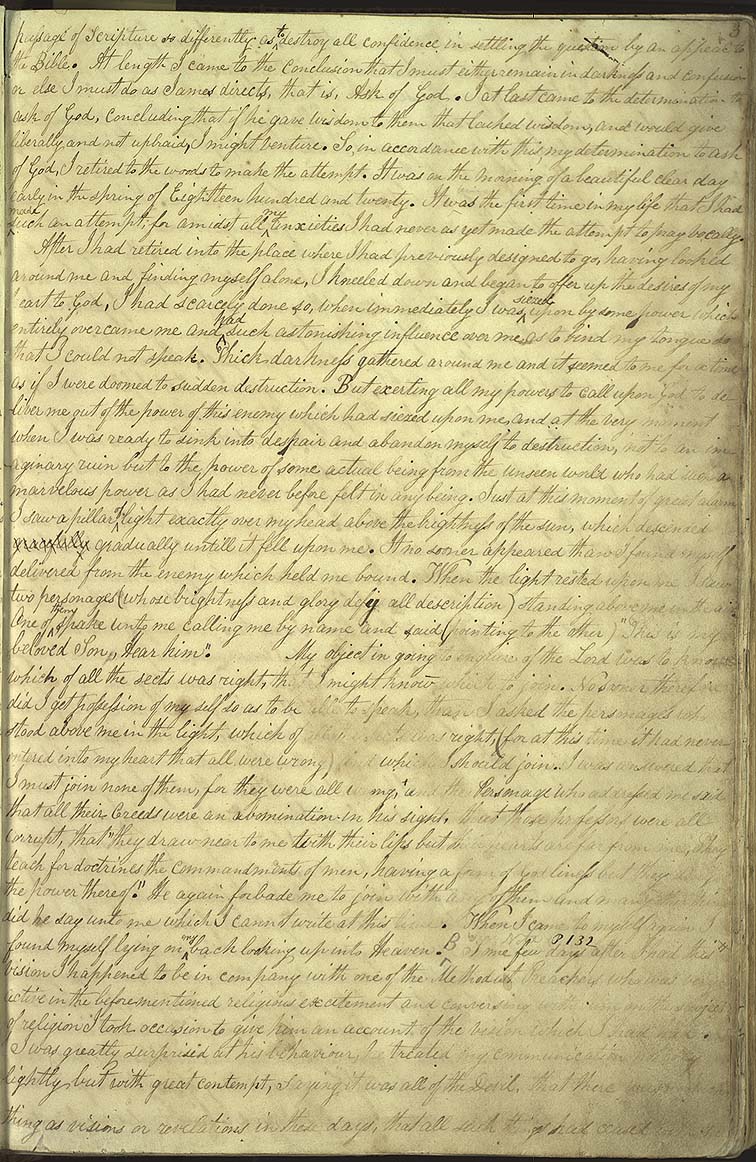 3
passage of Scripture so differently as to destroy all confidence in settling the question by an appeal to
the Bible. At length I came to the conclusion that I must either remain in darkness and confusion
or else I must do as James directs, that is, Ask of God. I at last came to the determination to
ask of God, concluding that if he gave wisdom to them that lacked wisdom, and would give
liberally and not upbraid, I might venture. So in accordance with this my determination to ask
of God, I retired to the woods to make the attempt. It was on the morning of a beautiful clear day
early in the spring of Eightteen hundred and twenty. It was the first time in my life that I had
made such an attempt, for amidst all my anxieties I had never as yet made the attempt to pray vocally.
After I had retired into the place where I had previously designed to go, having looked
around me and finding myself alone, I kneeled down and began to offer up the desires of my
heart to God, I had scarcely done so, when immediately I was siezed upon by some power which
entirely overcame me and had such astonishing influence over me as to bind my tongue so
that I could not speak. Thick darkness gathered around me and it seemed to me for a time
as if I were doomed to sudden destruction. But exerting all my powers to call upon God to de-
liver me out of the power of this enemy which had siezed upon me, and at the very moment
when I was ready to sink into despair and abandon myself to destruction, not to an im-
aginary ruin but to the power of some actual being from the unseen world who had such a
marvelous power as I had never before felt in any being. Just at this moment of great alarm
I saw a pillar of light exactly over my head above the brightness of the sun, which descended
gradually untill it fell upon me. It no sooner appeared than I found myself
delivered from the enemy which held me bound. When the light rested upon me I saw
two personages (whose brightness and glory defy all description) standing above me in the air.
One of them spake unto me calling me by name and said (pointing to the other) "This is my
beloved Son, Hear him". My object in going to enquire of the Lord was to know
which of all the sects was right, that I might know which to join. No sooner therefore
did I get possession of myself so as to be able to speak, than I asked the personages who
stood above me in the light, which of all the sects was right, (for at this time it had never
entered into my heart that all were wrong) and which I should join. I was answered that
I must join none of them, for they were all wrong, and the Personage who addressed me said
that all their Creeds were an abomination in his sight, that those professors were all
corrupt, that "they draw near to me with their lips but their hearts are far from me, They
teach for doctrines the commandments of men, having a form of Godliness but they deny
the power thereof." He again forbade me to join with any of them and many other things
did he say unto me which I cannot write at this time. When I came to myself again I
found myself lying on my back looking up into Heaven. B Some few days after I had this
Note P 132
vision I happened to be in company with one of the Methodist Preachers who was very
active in the before mentioned religious excitement and conversing with him on the subject
of religion I took occasion to give him an account of the vision which I had had.
I was greatly surprised at his behaviour, he treated my communication not only
lightly but with great contempt, saying it was all of the Devil, that there was no such
thing as visions or revelations in these days, that all such things had ceased